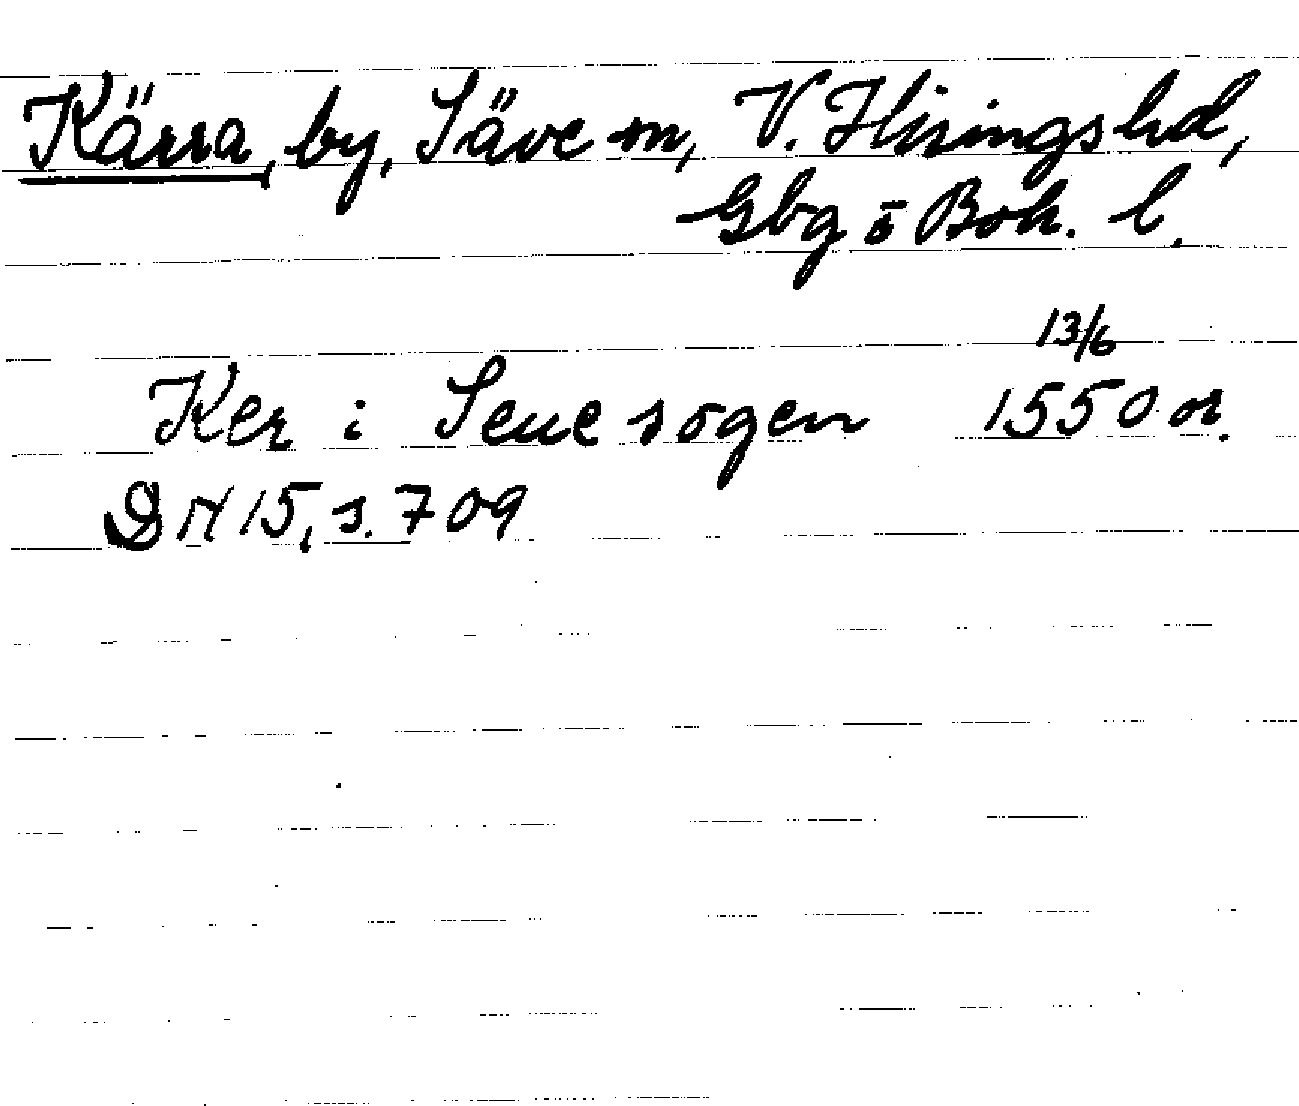 Kärra, by, Säve sn, V. Hisings hd,
Gbg o Boh. l.
13/6
Ker i Seue sogen 1550 or.
DN 15, s. 709